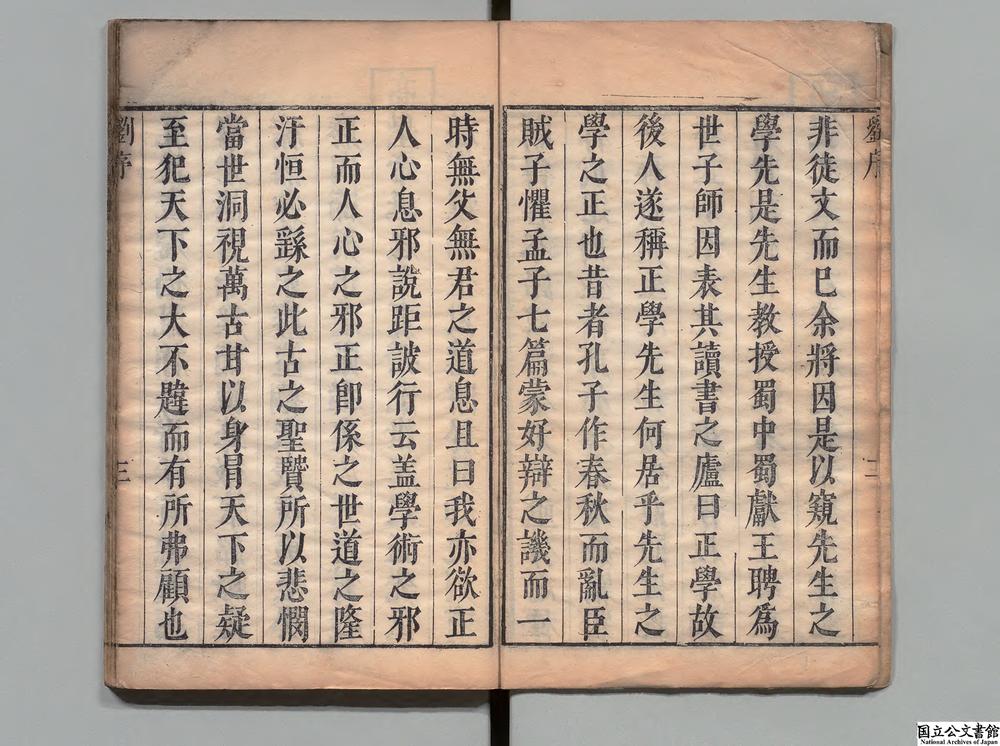 劉序
二
非徒文而已余將因是以窺先生之
學先是先生教授蜀中蜀獻王聘爲
世子師因表其讀書之廬曰正學故
後人遂稱正學先生何居乎先生之
學之正也昔者孔子作春秋而亂臣
賊子懼孟子七篇蒙好辯之譏而一
時無父無君之道息且曰我亦欲正
人心息邪說距詖行云盖學術之邪
正而人心之邪正卽係之世道之隆
汙恒必繇之此古之聖賢所以悲憫
當世洞視萬古甘以身冒天下之疑
至犯天下之大不韙而有所弗顧也
劉序
三
国立公文書館
National Archives of Japan